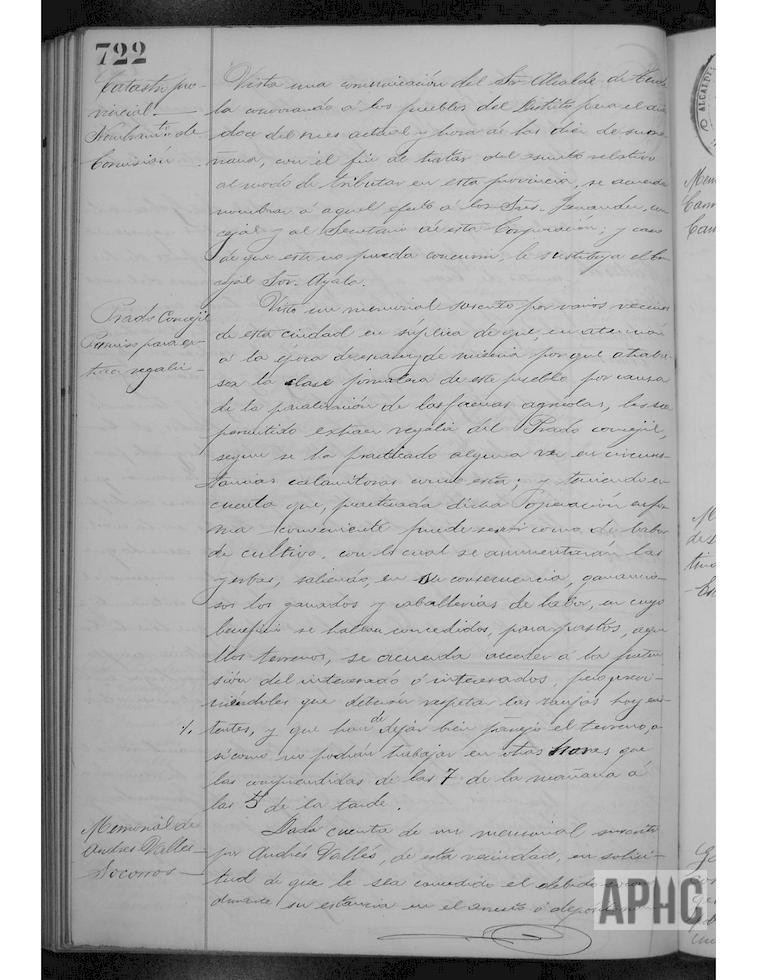 722
Catastro pro-
vincial-
Nombramto. de
Comisión
Vista una comunicación del Sor. Alcalde de Tude-
la convocando á los pueblos del Distrito para el dia
doce del mes actual y hora de las diez de su ma-
ñana, con el fin de tratar del asunto relativo
al modo de tributar en esta provincia, se acuerda
nombrar á aquel efecto á los Sres. Fernandez, con-
cejal y al Secretario de esta Corporación; y caso
de que este no pueda concurrir, le sustituya el Con-
cejal Sor. Ayala.
Prado Concejil
Permiso para ex-
traer regaliz-
Visto un memorial suscrito por varios vecinos
de esta ciudad en suplica de que, en atención
á la época de escasez y de miseria por que atrabie-
sa la clase jornalera de este pueblo por causa
de la paralización de las faenas agricolas, les sea
permitido extraer regaliz del Prado concejil,
segun se ha practicado alguna vez en circuns-
tancias calamitosas como esta; y teniendo en
cuenta que, practicada dicha operación en for-
ma conveniente puede servir como de labor
de cultivo, con lo cual se aumentarán las
yerbas, saliendo, en su consecuencia, ganancio-
sos los ganados y caballerias de labor, en cuyo
beneficio se hallan concedidos, para pastos, aque-
llos terrenos, se acuerda acceder á la preten-
sión del interesado ó interesados, pero previ-
niéndoles que deberán respetar las zanjas hoy exis-
tentes, y que han de dejar bien parejo el terreno, a-
sí como no podrán trabajar en otras horas que
las comprendidas de las 7 de la mañana á
las 5 de la tarde.
Memorial de
Andres Valles-
Socorros-
Dada cuenta de un memorial suscrito
por Andrés Vallés, de esta vecindad, en solici-
tud de que le sea concedido el debido
durante su estancia en el arresto ó deposito
ALCALDE
APHC